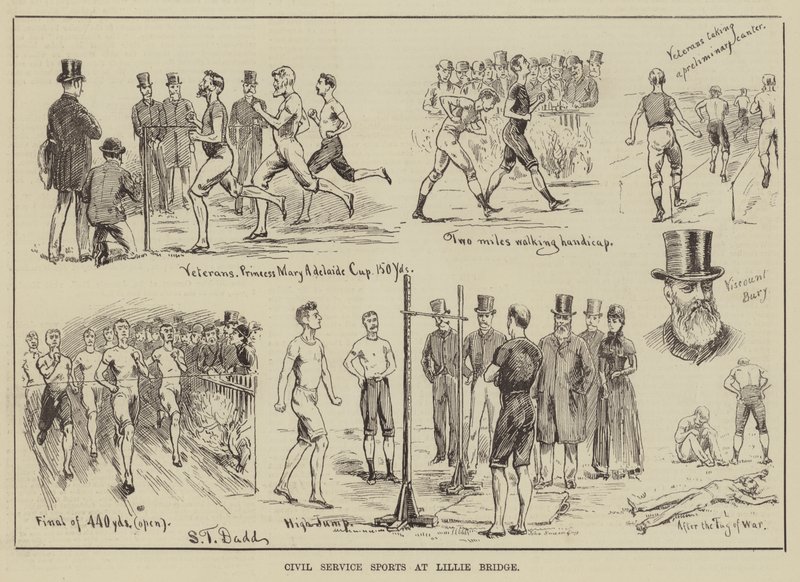 Veterans taking
a preliminary canter.
Veterans. Princess Mary Adelaide Cup. 150 Yds.
Two miles walking handicap.
Viscount
Bury
Final of 440 yds. (open).
S.T. Dadd
High Jump.
After the Tug of War.
CIVIL SERVICE SPORTS AT LILLIE BRIDGE.